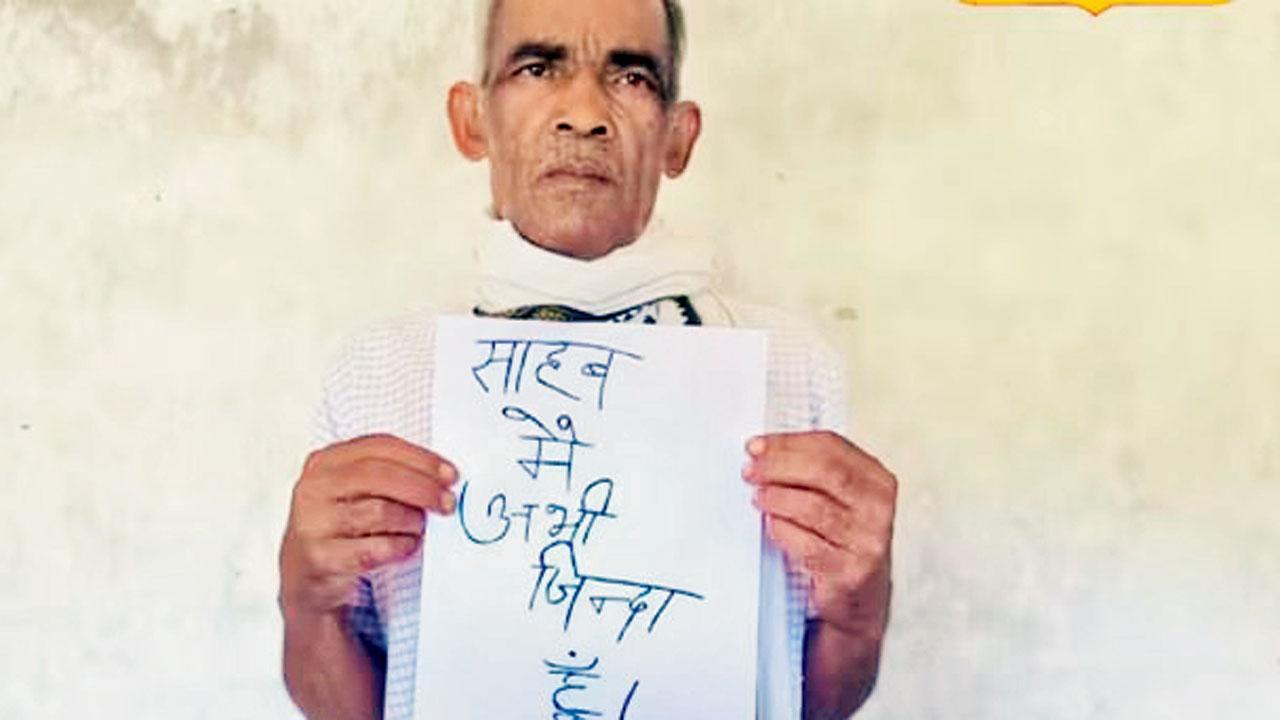 साहब
मै
अभी
जिन्दा
हूं।